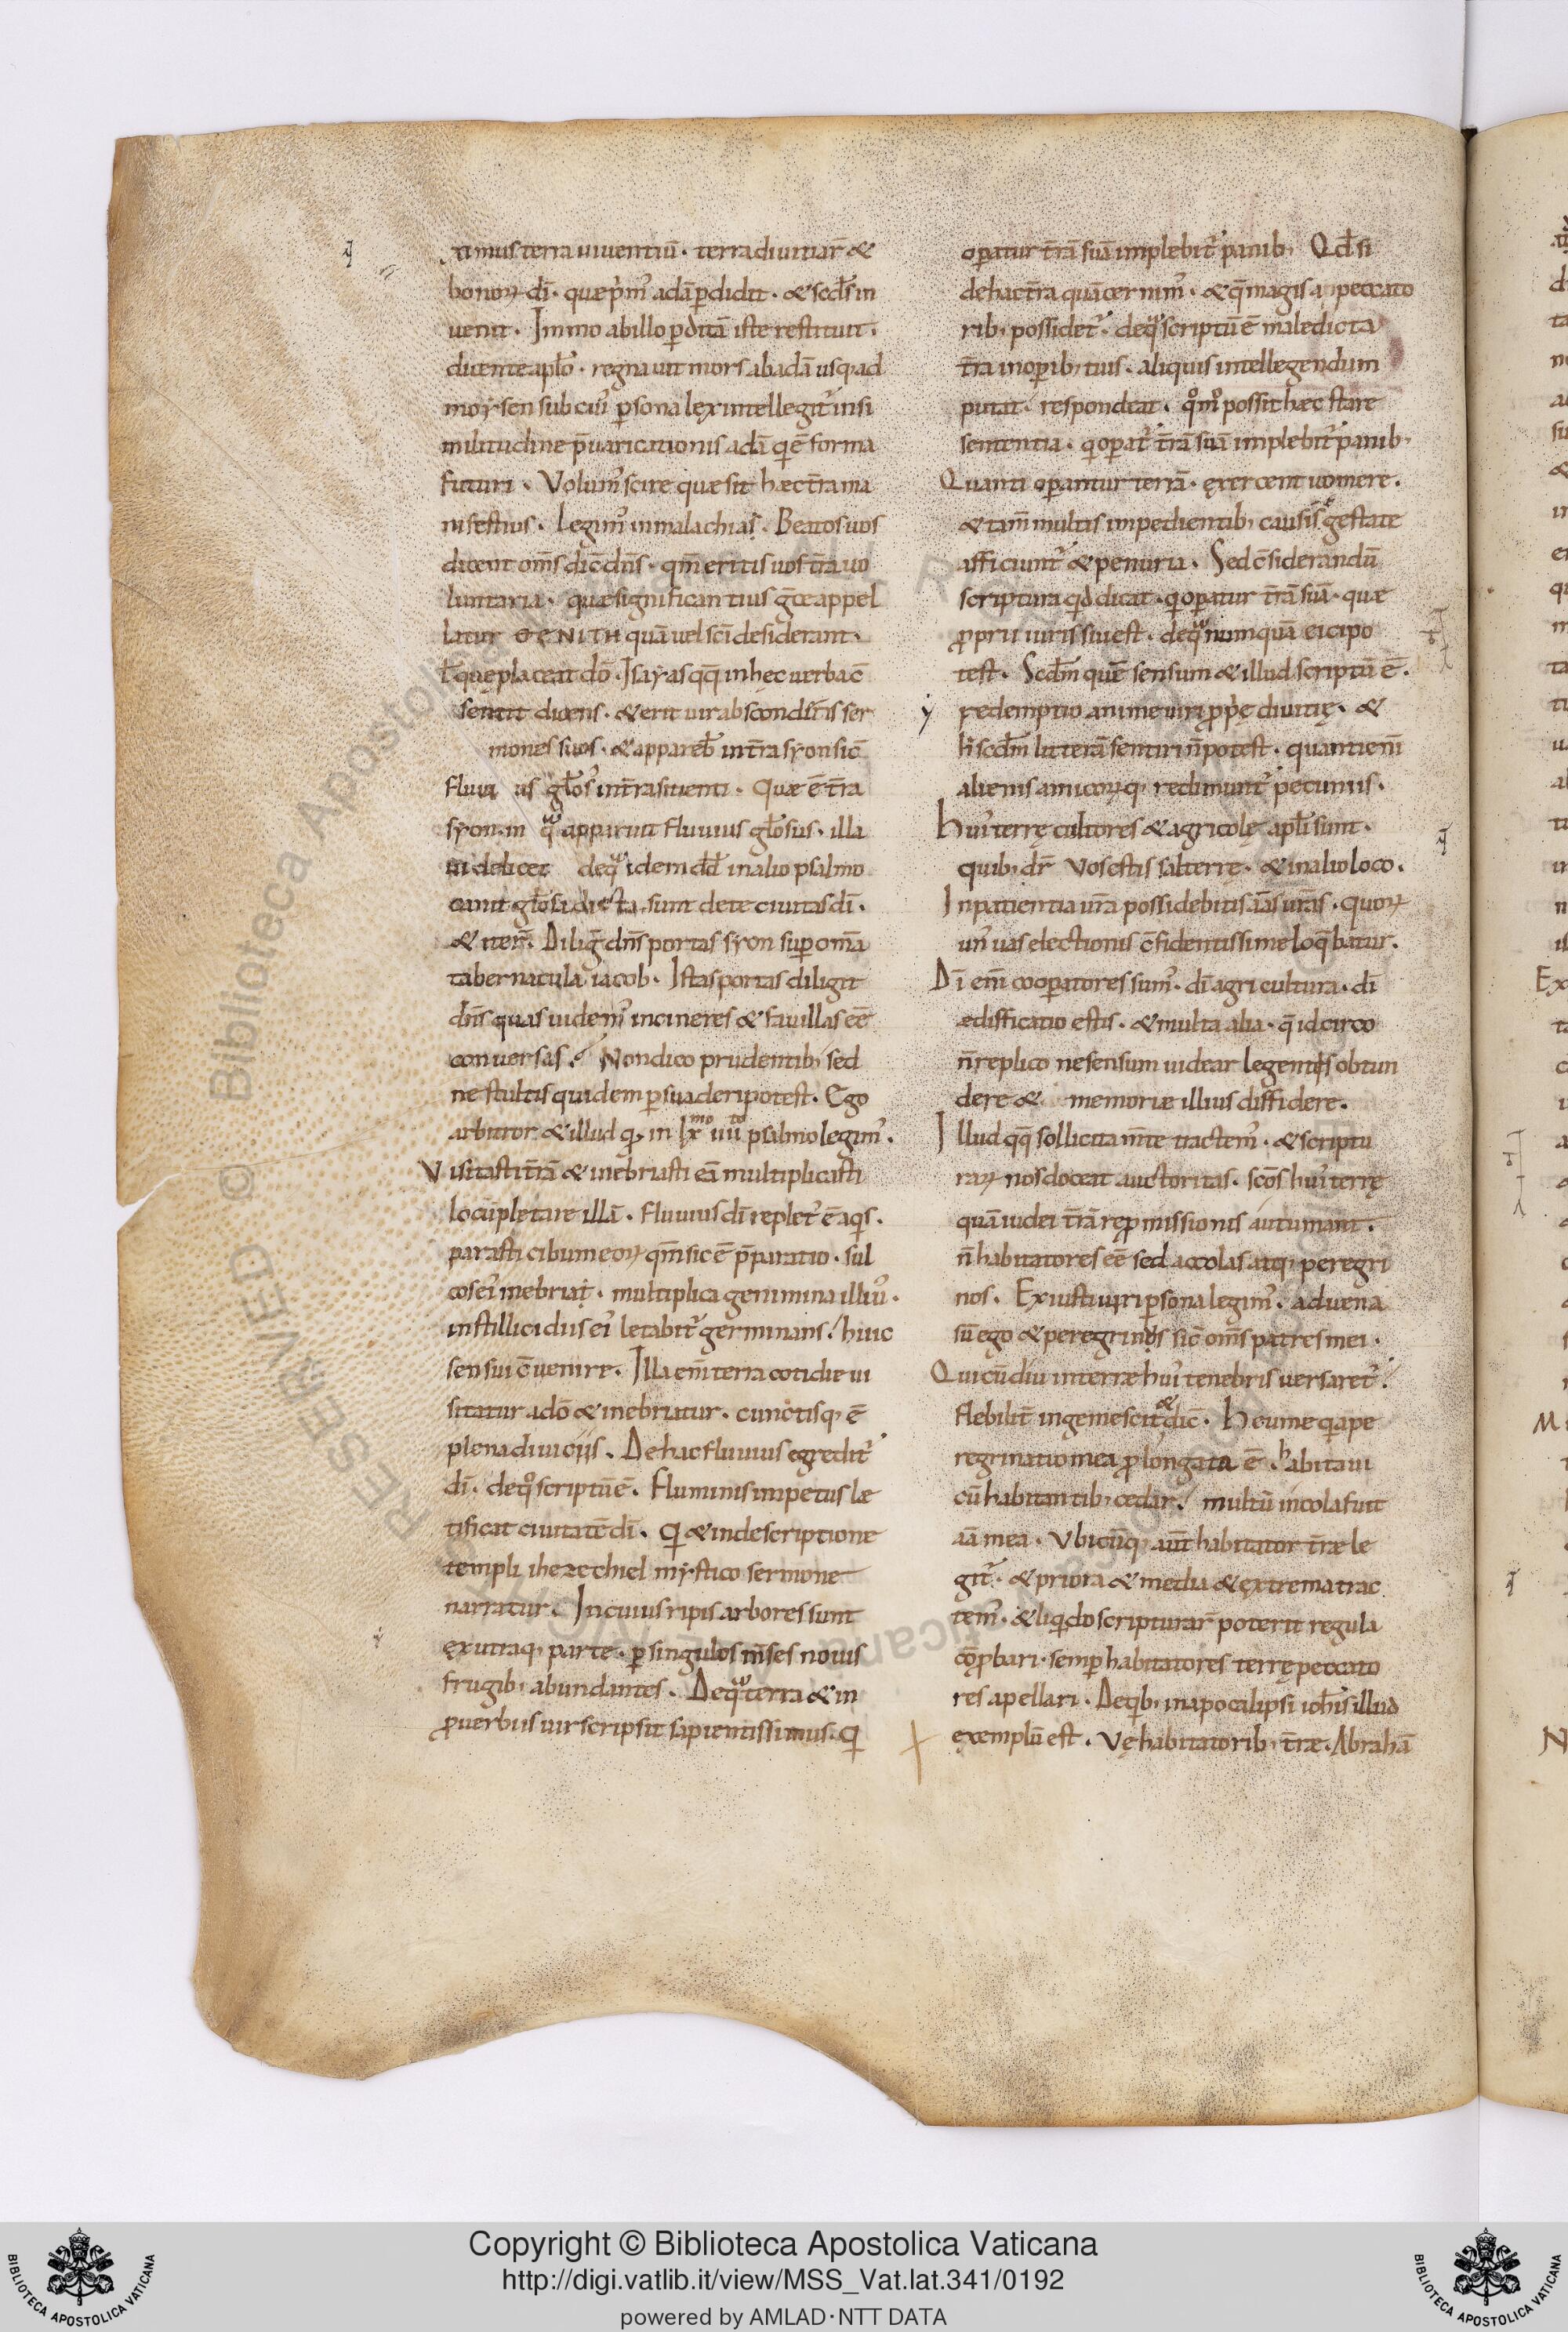 ximus terra uiuentiū. terra diuitiar̄ &
bonoꝝ dī. quæ pⁱm᾽ adā ꝑdidit. & scd̄s in
uenit. Immo ab illo ꝑditā iste restituit.
dicente apl̄o. regnauit mors ab adā usq; ad
moysen sub cui᾽ ꝑsona lęx intellegit᾽ in si
militudine p̄uaricationis adā qi ē forma
futuri. Volum᾽ scire quæ sit hæc t̄ra ma
nifestius. Legim᾽ in malachias. Beatos uos
dicent om̄s dic̄ dn̄s. qm̄ eritis uos t̄ra uo
luntaria. quæ significantius gc̄e appel
latur ΘΕΝΙΤΗ quā uel sc̄i desiderant.
ł quę placeat dō. Isayas qq; in hęc uerba c̄
sentit dicens. & erit uir abscondens ser
mones suos. & appareb̄ in t̄ra syon sic̄
fluui us gl̄os᾽ in t̄ra sitienti. Quæ ē t̄ra
syon. in qͣ apparuit fluuius gl̄osus. illa
uidelicet de qͣ idem dd̄ in alio psalmo
canit gl̄osa dicta sunt de te ciuitas dī.
& iter̄. Diliḡ dn̄s portas syon sup om̄a
tabernacula iacob. Istas portas diligit
dn̄s quas uidem᾽ in cineres & fauillas eē
conuersas? Non dico prudentib; sed
ne stultis quidem ꝑsuaderi potest. Ego
arbitror & illud q; in lxᵐᵒ iiiiᵗᵒ psalmo legim᾽.
Visitasti t̄rā & inebriasti eā multiplicasti
locūpletare illā. fluuius dī replet᾽ ē aqis.
parasti cibum eoꝝ qm̄ sic ē p̄paratio. sul
cos ei᾽ inebriat. multiplica genimina illiu᾽.
in stillicidiis ei᾽ letabit᾽ germinans. huic
sensui c̄uenire. Illa em̄ terra cotidie ui
sitatur a dō & inebriatur. cunctisq; ē
plena diuiciis. De hac fluuius egredit᾽
dī. de qͦ scriptū ē. Fluminis impetus læ
tificat ciuitatē dī. Qi & in descriptione
templi ihezechiel mystico sermone
narratur. In cuius ripis arbores sunt
ęx utraq; parte. ꝑ singulos m̄ses nouis
frugib; abundantes. De qͣ terra & in
ꝓuerbiis uir scripsit sapientissimus. Qi
oꝑatur t̄rā suā implebit᾽ panib; Qd̄ si
de hac t̄ra quā cernim᾽. & q̄ magis a peccato
rib; possidet᾽. de qͣ scriptū ē maledicta
t̄ra in oꝑib; tuis. aliquis intellegendum
putat. respondeat. qͦmͦ possit hæc stare
sententia. qi oꝑat᾽ t̄rā suā implebit᾽ panib;
Quanti oꝑantur terrā. ęxercent uomere.
& tam̄ multis impedientib; causis ęgestate
afficiunt᾽ & penuria. Sed c̄siderandū
scriptura qid dicat. qi oꝑatur t̄rā suā. quæ
ꝓprii iuris sui est. de qͣ numquā eici po
test. Scdm̄ quē sensum & illud scriptū ē.
redemptio animę uiri ꝓpⁱę diuitię. &
h̄ scdm̄ litterā sentiri n̄ potest. quanti em̄
alienis amicoꝝq; redimunt᾽ pecuniis.
Hui᾽ terrę cultores & agricolę apl̄i sunt.
quib; dr̄ Vos estis sal terrę. & in alio loco.
In patientia ur̄a possidebitis aīas ur̄as. Quoꝝ
un᾽ uas electionis c̄fidentissime loq̄batur.
Dī em̄ cooꝑatores sum᾽. dī agri cultura. dī
ædifficatio estis. & multa alia. q̄ idcirco
n̄ replico ne sensum uidear legentis obtun
dere & memoriæ illius diffidere.
Illud qq; sollicita m̄te tractem᾽. & scriptu
raꝝ nos doceat auctoritas. sc̄os hui᾽ terrę
quā iudei t̄rā reꝓmissionis autumant.
n̄ habitatores eē sed accolas atq; peregri
nos. Ex iusti uiri ꝑsona legim᾽. aduena
sū ego & peregrinus sic̄ om̄s patres mei.
Qui cū diu in terræ hui᾽ tenebris uersaret᾽.
flebilit̄ ingemescit & dic̄. Heu me qia pe
regrinatio mea ꝓlongata ē. habitaui
cū habitantib; cedar. multū incola fuit
aīa mea. Vbicūq; aut̄ habitator t̄ræ le
git᾽. & priora & media & ęxtrema trac
tem᾽. & liqido scripturar̄ poterit regula
cōꝓbari. semꝑ habitatores terrę peccato
res apellari. De qib; in apocalipsi ioh̄is illud
exemplū est. Vę habitatorib; t̄ræ. Abrahā
Copyright © Biblioteca Apostolica Vaticana
http://digi.vatlib.it/view/MSS_Vat.lat.341/0192
powered by AMLAD·NTT DATA
BIBLIOTECA APOSTOLICA VATICANA
BIBLIOTECA APOSTOLICA VATICANA